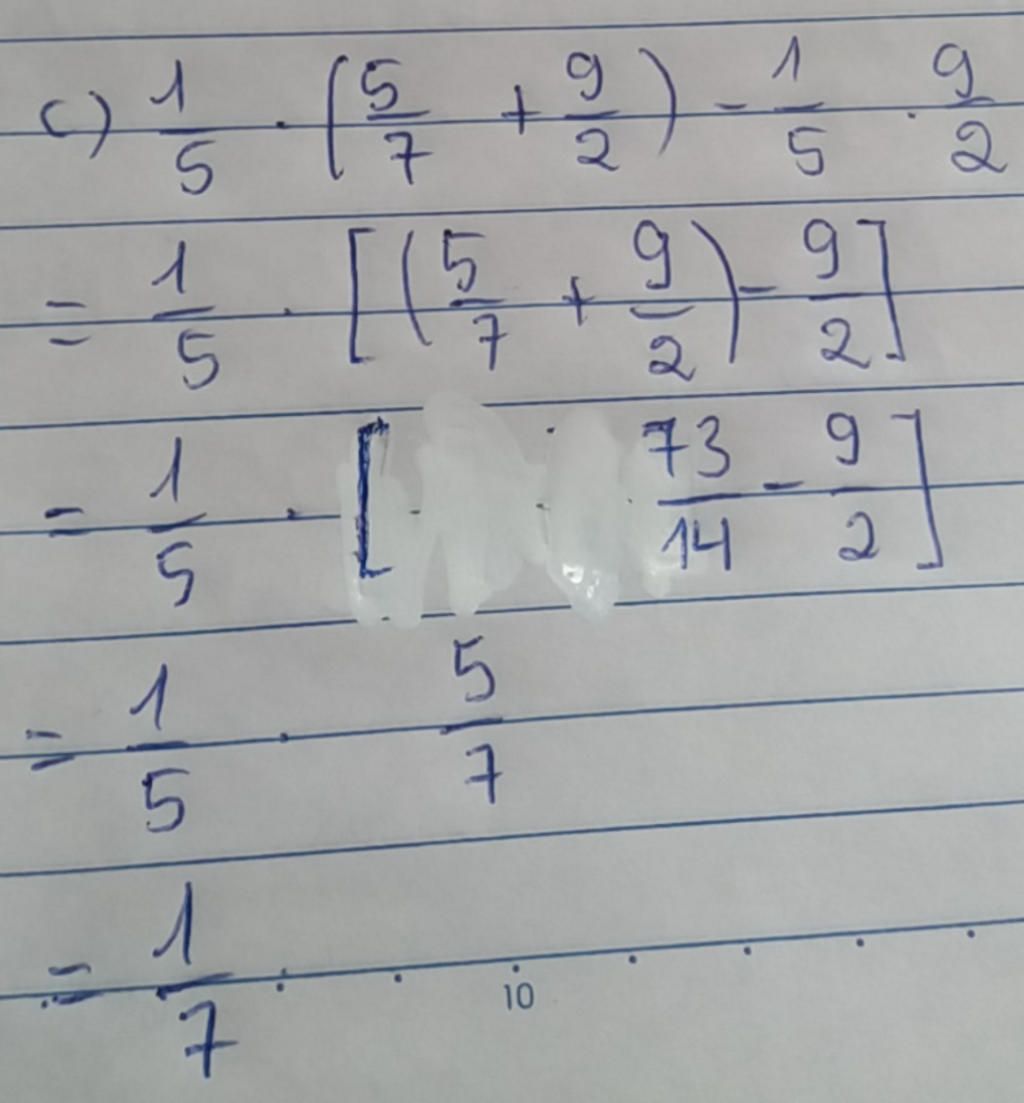 c) 1/5 · (5/7 + 9/2) - 1/5 · 9/2
= 1/5 · [(5/7 + 9/2) - 9/2]
= 1/5 · [73/14 - 9/2]
= 1/5 · 5/7
= 1/7
10